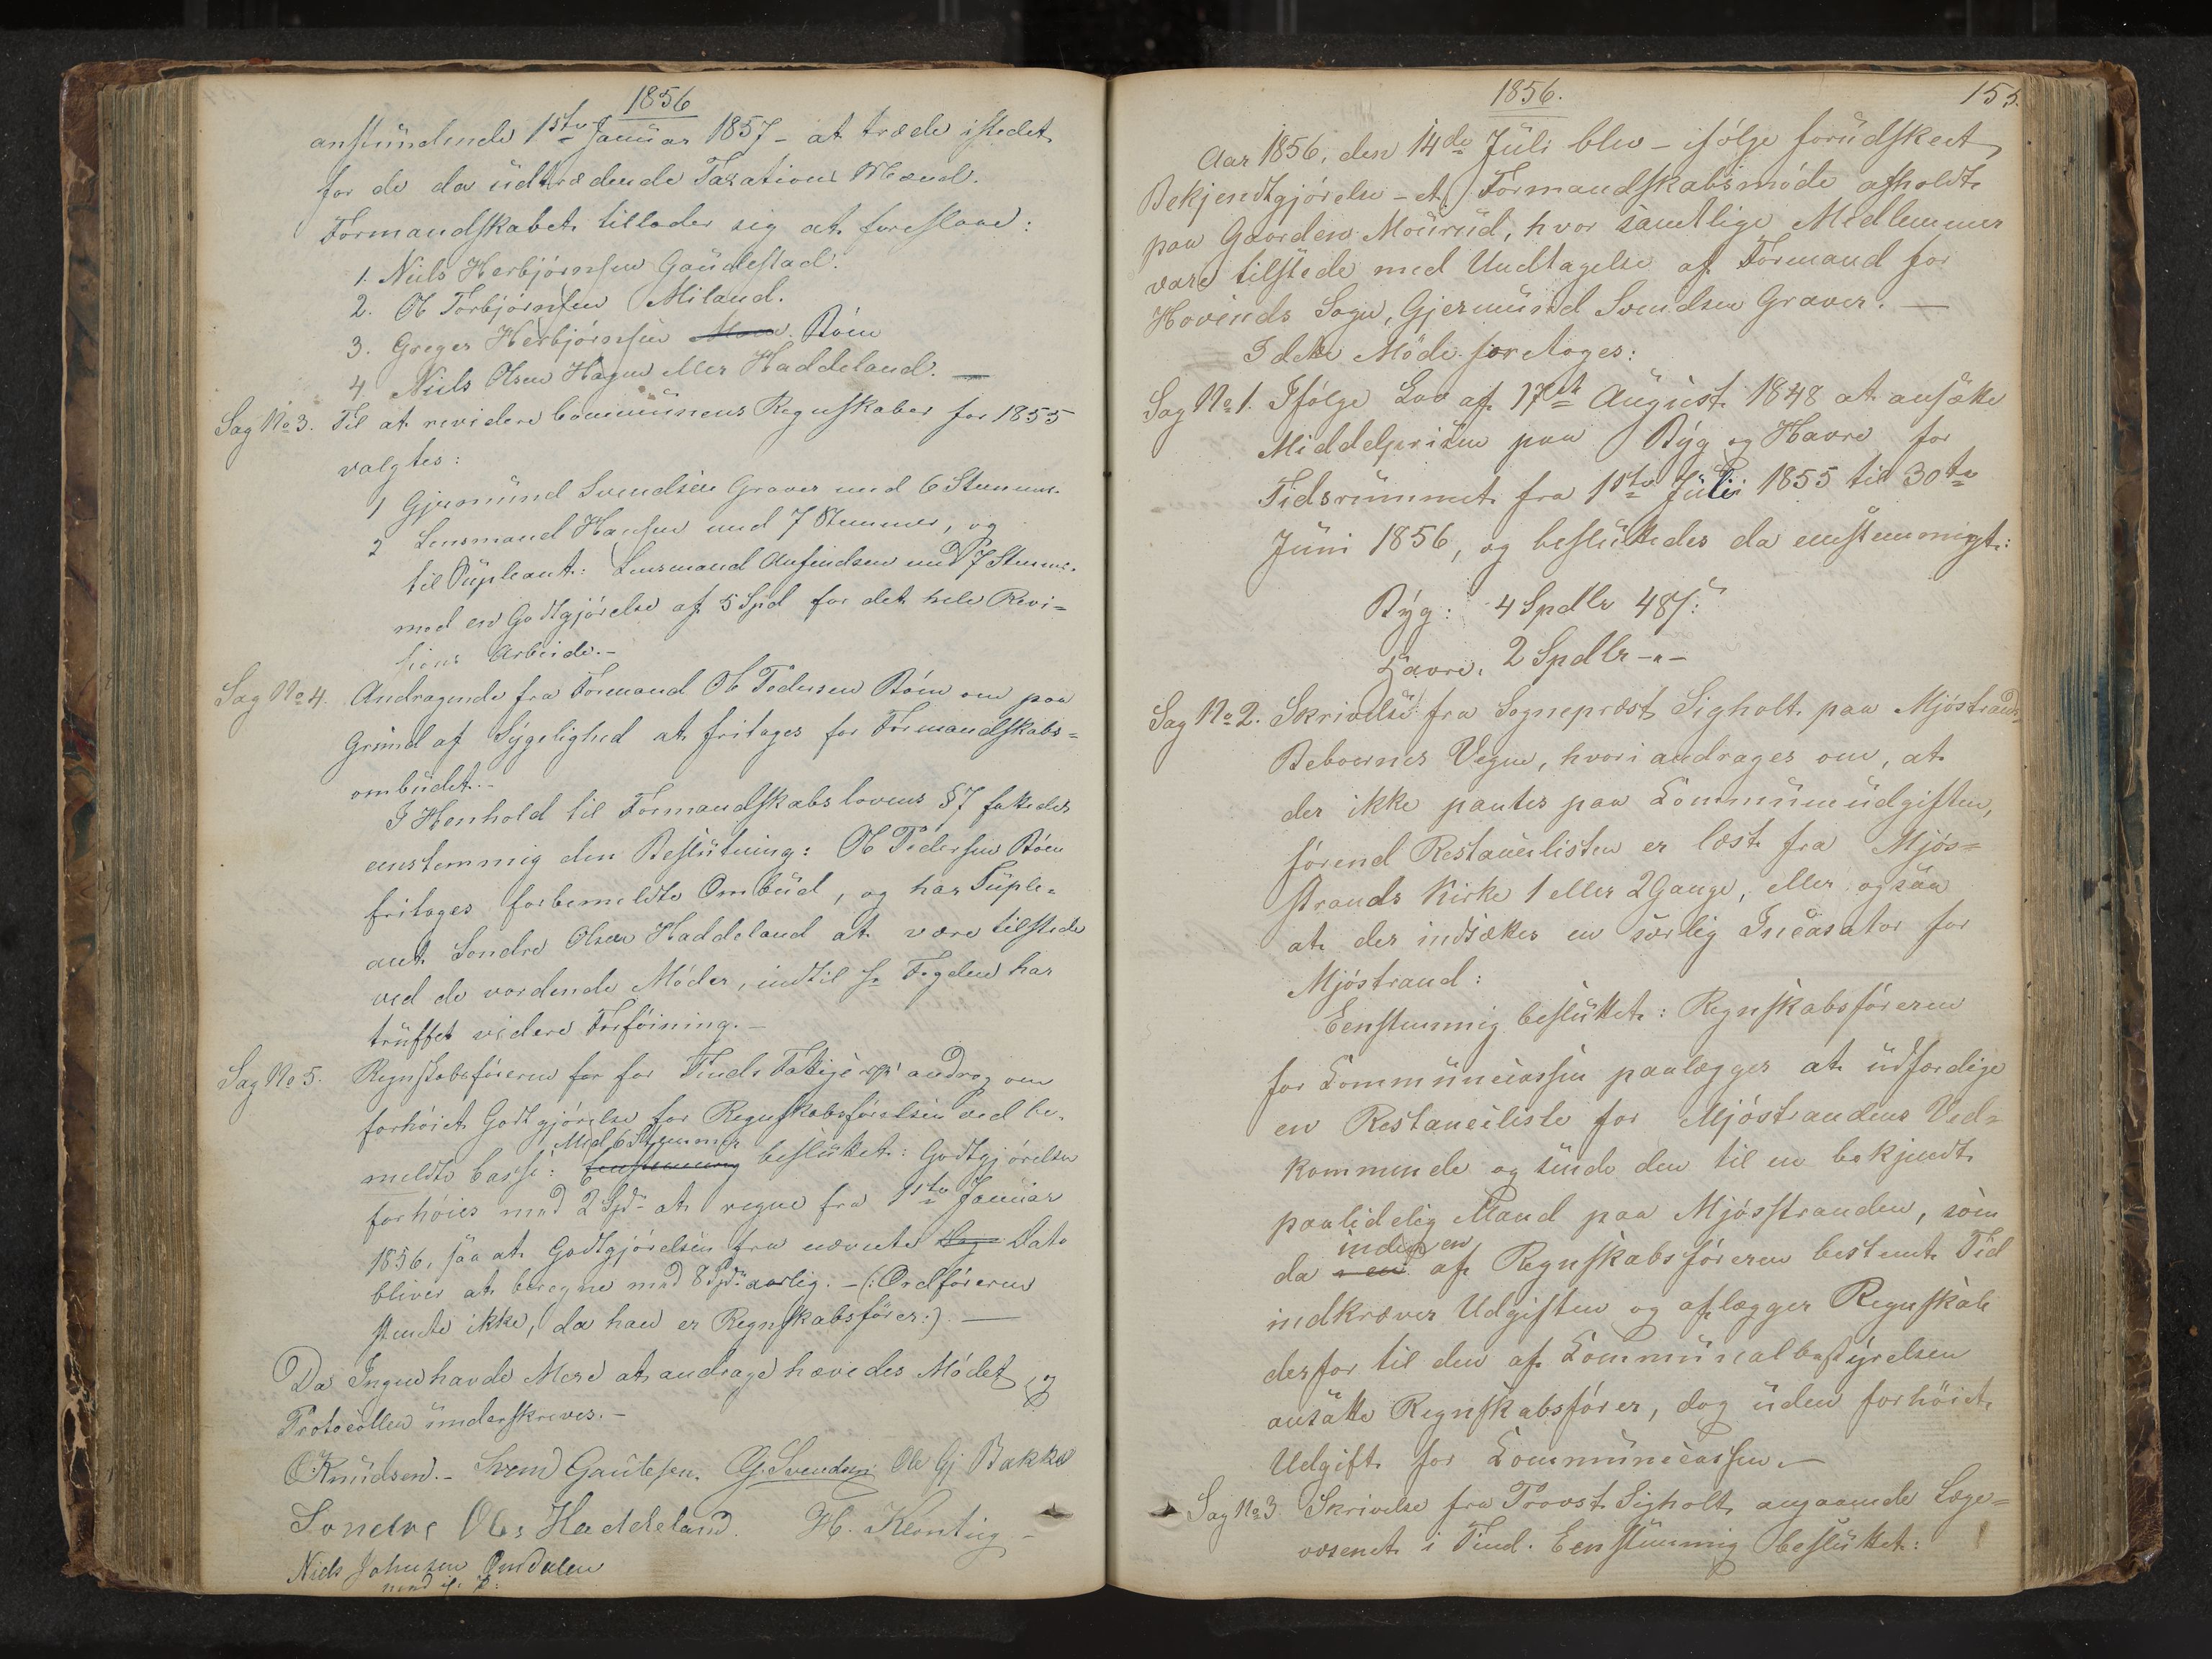 1856
anstundende 1ste Januar 1857 - at træde istedet
for de da udtrædende Taxations Mænd.
Formandskabet tillader sig at foreslaae:
1. Niels Herbjörnsen Gaudestad.
2. Ole Torbjörnsen Miland.
3. Greger Herbjörnsen Böen
4 Niels Olsen Hagen eller Haddeland. —
Sag No 3. Til at revidere Communens Regnskaber for 1855
valgtes:
1 Gjermund Svendsen Graver med 6 Stemmer
2 Lensmand Hansen med 7 Stemmer, og
til Supleant: Lensmand Anfindsen med 7 Stemmer
mod en Godtgjörelse af 5 Spd for det hele Revi=
sions Arbeide.-
Sag No 4. Andragende fra Formand Ole Pedersen Böen om paa
Grund af Sygelighed at fritages for Formandskabs=
ombudet.-
I Henhold til Formandskabslovens §7 fattedes
eenstemmig den Beslutning: Ole Pedersen Böen
fritages forbemeldte Ombud, og har Suple=
ant Sondre Olsen Haddeland at være tilstede
ved de vordende Möder, indtil Hr Fogden har
truffet videre Föiföining.-
Sag No 5. Regnskabsföreren for for Tinds Fattige androg om
forhöiet Godtgjörelse for Regnskabsförelsen ved be=
Med 6 Stemmer
meldte Casse: Eenstemmig besluttet: Godtgjörelsen
forhöies med 2 Spd at regne fra 1ste Januar
1856, saa at Godtgjörelsen fra nævnte Dag Dato
bliver at beregne med 8 Spd aarlig. -(:Ordföreren
stemte ikke, da han er Regnskabsförer:) —
Da Ingen havde Mere at andrage hævedes Mödet og
Protocollen underskreves.-
O Knudsen.- Svend Gautesen. G. Svendsen Ole Gj Bakke
Sondre Ols Haddeland. H. Kemtig -
Niels Johnsen Omdalen
med i: P:
1856.
155.
Aar 1856, den 14de Juli blev - ifölge forudskeet
Bekjendtgjörelse - et Formandskabsmöde afholdt
paa Gaarden Mourud, hvor samtlige Medlemmer
vare tilstede med Undtagelse af Formand for
Hovinds Sogn, Gjermund Svendsen Graver. —
I dette Möde foretoges:
Sag No 1. Ifölge Lov af 17de August 1848 at ansætte
Middelprisen paa Byg og Havre for
Tidsrummet fra 1ste Juli 1855 til 30te
Juni 1856, og besluttedes da eenstemmigt:
Byg: 4 Spdlr 48 s:
Havre, 2 Spdlr -"-
Sag No 2. Skrivelse fra Sognepræst Sigholt paa Mjöstrands
Beboernes Vegne, hvori andrages om, at
der ikke pantes paa Communeudgiften,
förend Restancelisten er læst fra Mjös=
strands Kirke 1 eller 2 Gange, eller ogsaa
at der indsættes en særlig Incasator for
Mjöstrand:
Eenstemmig besluttet: Regnskabsföreren
for Communecassen paalægges at udfærdige
en Restanceliste for Mjöstrandens Ved=
kommende og sende den til en bekjendt
paalidelig Mand paa Mjösstranden, som
inden en
da i en af Regnskabsföreren bestemt Tid
indkræver Udgiften og aflægger Regnskab
derfor til den af Communalbestyrelsen
ansatte Regnskabsförer, dog uden forhöiet
Udgift for Communecassen.—
Sag No 3 Skrivelse fra Provst Sigholt angaaende Læge=
væsenet i Tind. Eenstemmig besluttet: